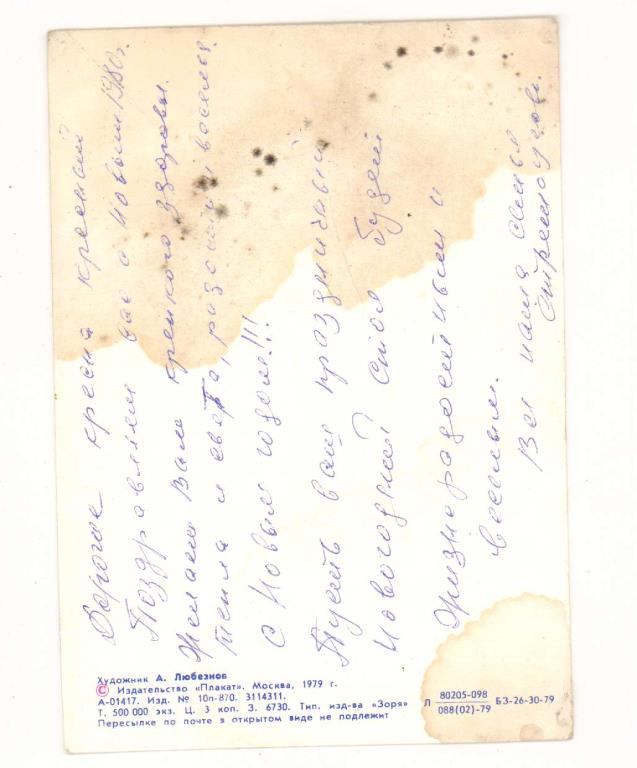 Дорогие кресна крестный
Поздравляем вас с Новым 1980г.
Желаем Вам крепкого здоровья
тепла и света, радости и веселья.
С Новым годом!!!
Пусть ваш праздничный
новогодний стол будет
жизнерадостным и
веселым.
Вся наша семья
Художник А. Любезнов
© Издательство «Плакат». Москва, 1979 г.
А-01417. Изд. № 10п-870. 3114311.
Т. 500 000 экз. Ц. 3 коп. З. 6730. Тип. изд-ва «Зоря»
Пересылке по почте в открытом виде не подлежит
Л 80205-098
088(02)-79 БЗ-26-30-79